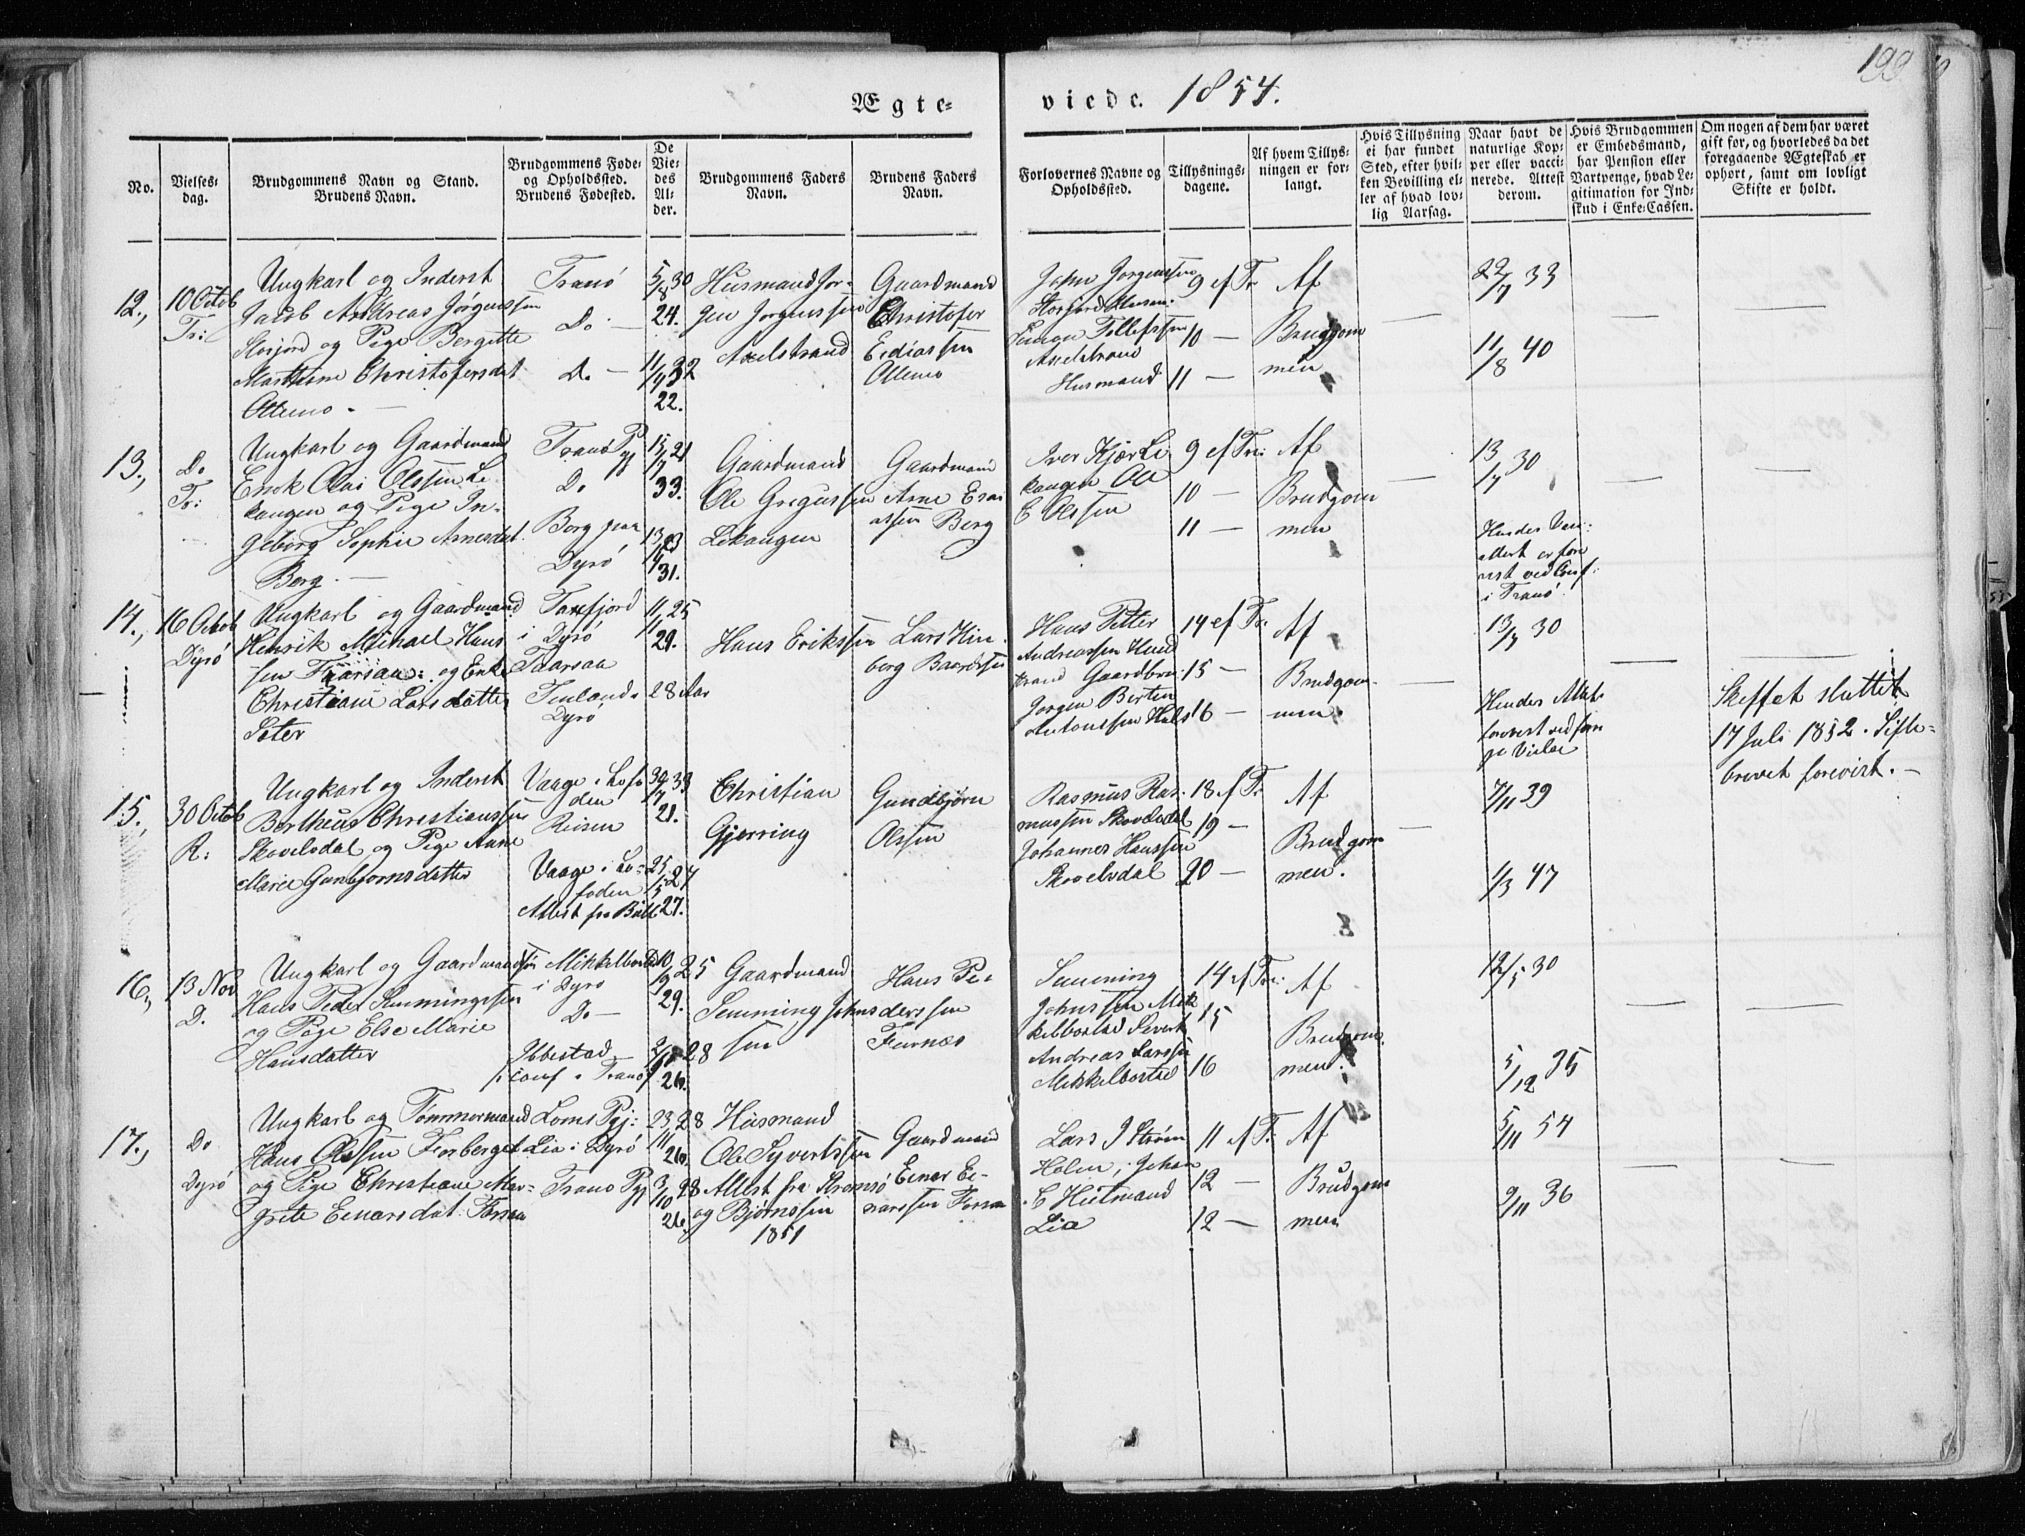 199
Ægte-
viede. 1854.
No.
Vielses-
dag.
Brudgommens Navn og Stand.
Brudens Navn.
Brudgommens Føde-
og Opholdssted.
Brudens Fødested.
De
Vie-
des
Al-
der.
Brudgommens Faders
Navn.
Brudens Faders
Navn.
Forlovernes Navne og
Opholdssted.
Tillysnings-
dagene.
Af hvem Tillys-
ningen er for-
langt.
Hvis Tillysning
ei har fundet
Sted, efter hvil-
ken Bevilling el-
ler af hvad lov-
lig Aarsag.
Naar havt de
naturlige Kop-
per eller vacci-
nerede. Attest
derom.
Hvis Brudgommen
er Embedsmand,
har Pension eller
Vartpenge, hvad Le-
gitimation for Ind-
skud i Enke-Cassen.
Om nogen af dem har været
gift før, og hvorledes da det
foregaaende Ægteskab er
ophørt, samt om lovligt
Skifte er holdt.
12.,
10 Octob
Tr:
Ungkarl og Inderst
Jacob Andreas Jørgenssen
Storjord og Pige Bergitte
Marthine Christofersdat
Ottemo. —
Tranö
Do —
Do —
5/8 30
24.
11/9 32
22.
Husmand Jør-
gen Jørgenssen
Axelstrand
Gaardmand
Christofer
Ediassen
Ottemo
John Jorgenssen
Storjord Husm:
Simon Tollefssen
Axelstrand
Husmand
9 ef Tr:
10 —
11 —
Af
Brudgom
men
22/7 33
11/8 40
13.,
Do
Tr:
Ungkarl og Gaardmand
Erick Olai Olssen Le
kangen og Pige In-
geborg Sophie Arnesdat.
Berg. —
Tranö Pgj
Do
Berg paa
Dyrö
15/7 21
33.
13/4 23
31.
Gaardmand
Ole Gregussen
Lekangen
Gaardmand
Arne Esai
assen Berg
Iver Kjær Le
kangen Ole
E Olssen
9 ef Tri:
10 —
11 —
Af
Brudgom
men
13/7 30
Hendes Vac-
Attest er fore
vist ved Conf:
i Tranö
14.,
16 Octob
Dÿrö
Ungkarl og Gaardmand
Henrik Michael Hans
sen Faarsaa: og Enke
Christiane Larsdatter
Seter
Faxfjord
i Dÿrö
Faarsaa
Finland
Dyrö
11/11 25
29.
28 Aar
Hans Erikssen
Lars Hin
berg Baardssen
Hans Petter
Andreassen Hund
strand Gaardbru.
Jørgen Berten
Antonssen Hals
14 ef Tr:
15 —
16 —
Af
Brudgom-
men
13/7 30
Hendes Attest
forevist ved forri
ge Vielse
Skiftet sluttet
17 Juli 1852. Skifte-
brevet forevist. —
15.,
30 Octob
R:
Ungkarl og Inderst
Bertheus Christianssen
Skovelvdal og Pige Anne
Marie Gunbjornsdatter
Vaage i Lofo
den
Reisen
Vaage i Lo-
foden
Attest fra Build
30/7 33
21.
25/5 27
27.
Christian
Gjerring
Gundbjørn
Olssen
Rasmus Ras-
mussen Skovelvdal
Johannes Hanssen
Skovelvdal
18 ef Tr:
19 —
20 —
Af
Brudgom
men.
7/11 39
1/3 47
16.,
13 Nov
D.
Ungkarl og Gaardmandssøn
Hans Peder Semmingssen
og Pige Else Marie
Hansdatter
Mikkelbostad
i Dyrö
Do —
Ibbestad
conf i Tranö
10/9 25
29.
28
26.
Gaardmand
Semming Johns
sen
Hans Pe-
derssen
Furnæs
Semming
Johnssen Mik
kelbostad Sivert
Andreas Larssen
Mikkelbostad
14 ef Tr:
15
16
Af
Brudgom
men.
12/5 30
5/12 35
17.,
Do
Dyrö
Ungkarl og Tømmermand
Hans Olssen Forberget
og Pige Christiane Mar-
grete Einarsdat. Forsaa
Loms Pgj:
Lia i Dyrö
Tranö Pgj
23/11 28
26.
3/10 28
26.
Husmand
Ole Syvertssen
Attest fra Stromsö
og Bjørnssen
1851
Gaardmand
Einar Ei-
narssen Forsaa
Lars J Strøm
Holm, Johan
C Heitmand
Lia
11 ef Tr:
12 —
12 —
Af
Brudgom
men
5/11 54
9/11 36